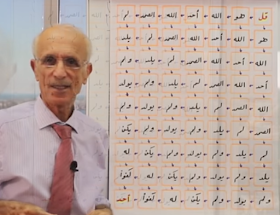 قل - هو - الله - أحد - الله - الصمد - لم
هو - الله - أحد - الله - الصمد - لم - يلد
الله - أحد - الله - الصمد - لم - يلد - ولم
أحد - الله - الصمد - لم - يلد - ولم - يولد
الله - الصمد - لم - يلد - ولم - يولد - ولم
الصمد - لم - يلد - ولم - يولد - ولم - يكن
لم - يلد - ولم - يولد - ولم - يكن - له
يلد - ولم - يولد - ولم - يكن - له - كفوًا
ولم - يولد - ولم - يكن - له - كفوًا - أحد